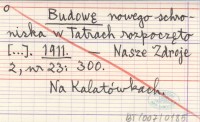 Budowę nowego schro-
niska w Tatrach rozpoczęto
[...]. 1911. — Nasze Zdroje
2, nr 23: 300.
Na Kalatówkach.